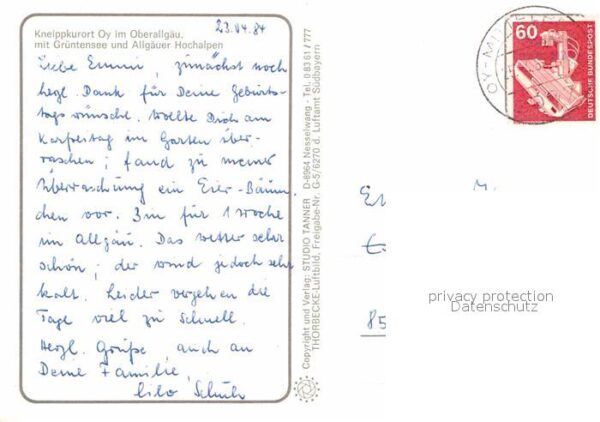 23.04.84
Kneippkurort Oy im Oberallgäu,
mit Grüntensee und Allgäuer Hochalpen
Liebe Emmi, zunächst noch
herzl. Dank für Deine Geburts-
tagswünsche. Wollte Dich am
Karfreitag im Garten über-
raschen; fand zu meiner
Überraschung ein Eier-Bäum-
chen vor. Bin für 1 Woche
im Allgäu. Das Wetter sehr
schön; der Wind jedoch sehr
kalt. Leider vergehen die
Tage viel zu schnell.
Herzl. Grüße, auch an
Deine Familie,
Copyright und Verlag: STUDIO TANNER D-8964 Nesselwang - Tel. 0 83 61 / 777
THORBECKE-Luftbild, Freigabe-Nr. G-5/6270 d. Luftamt Südbayern
60
DEUTSCHE BUNDESPOST
OY-MITTELBERG
M.
85
privacy protection
Datenschutz